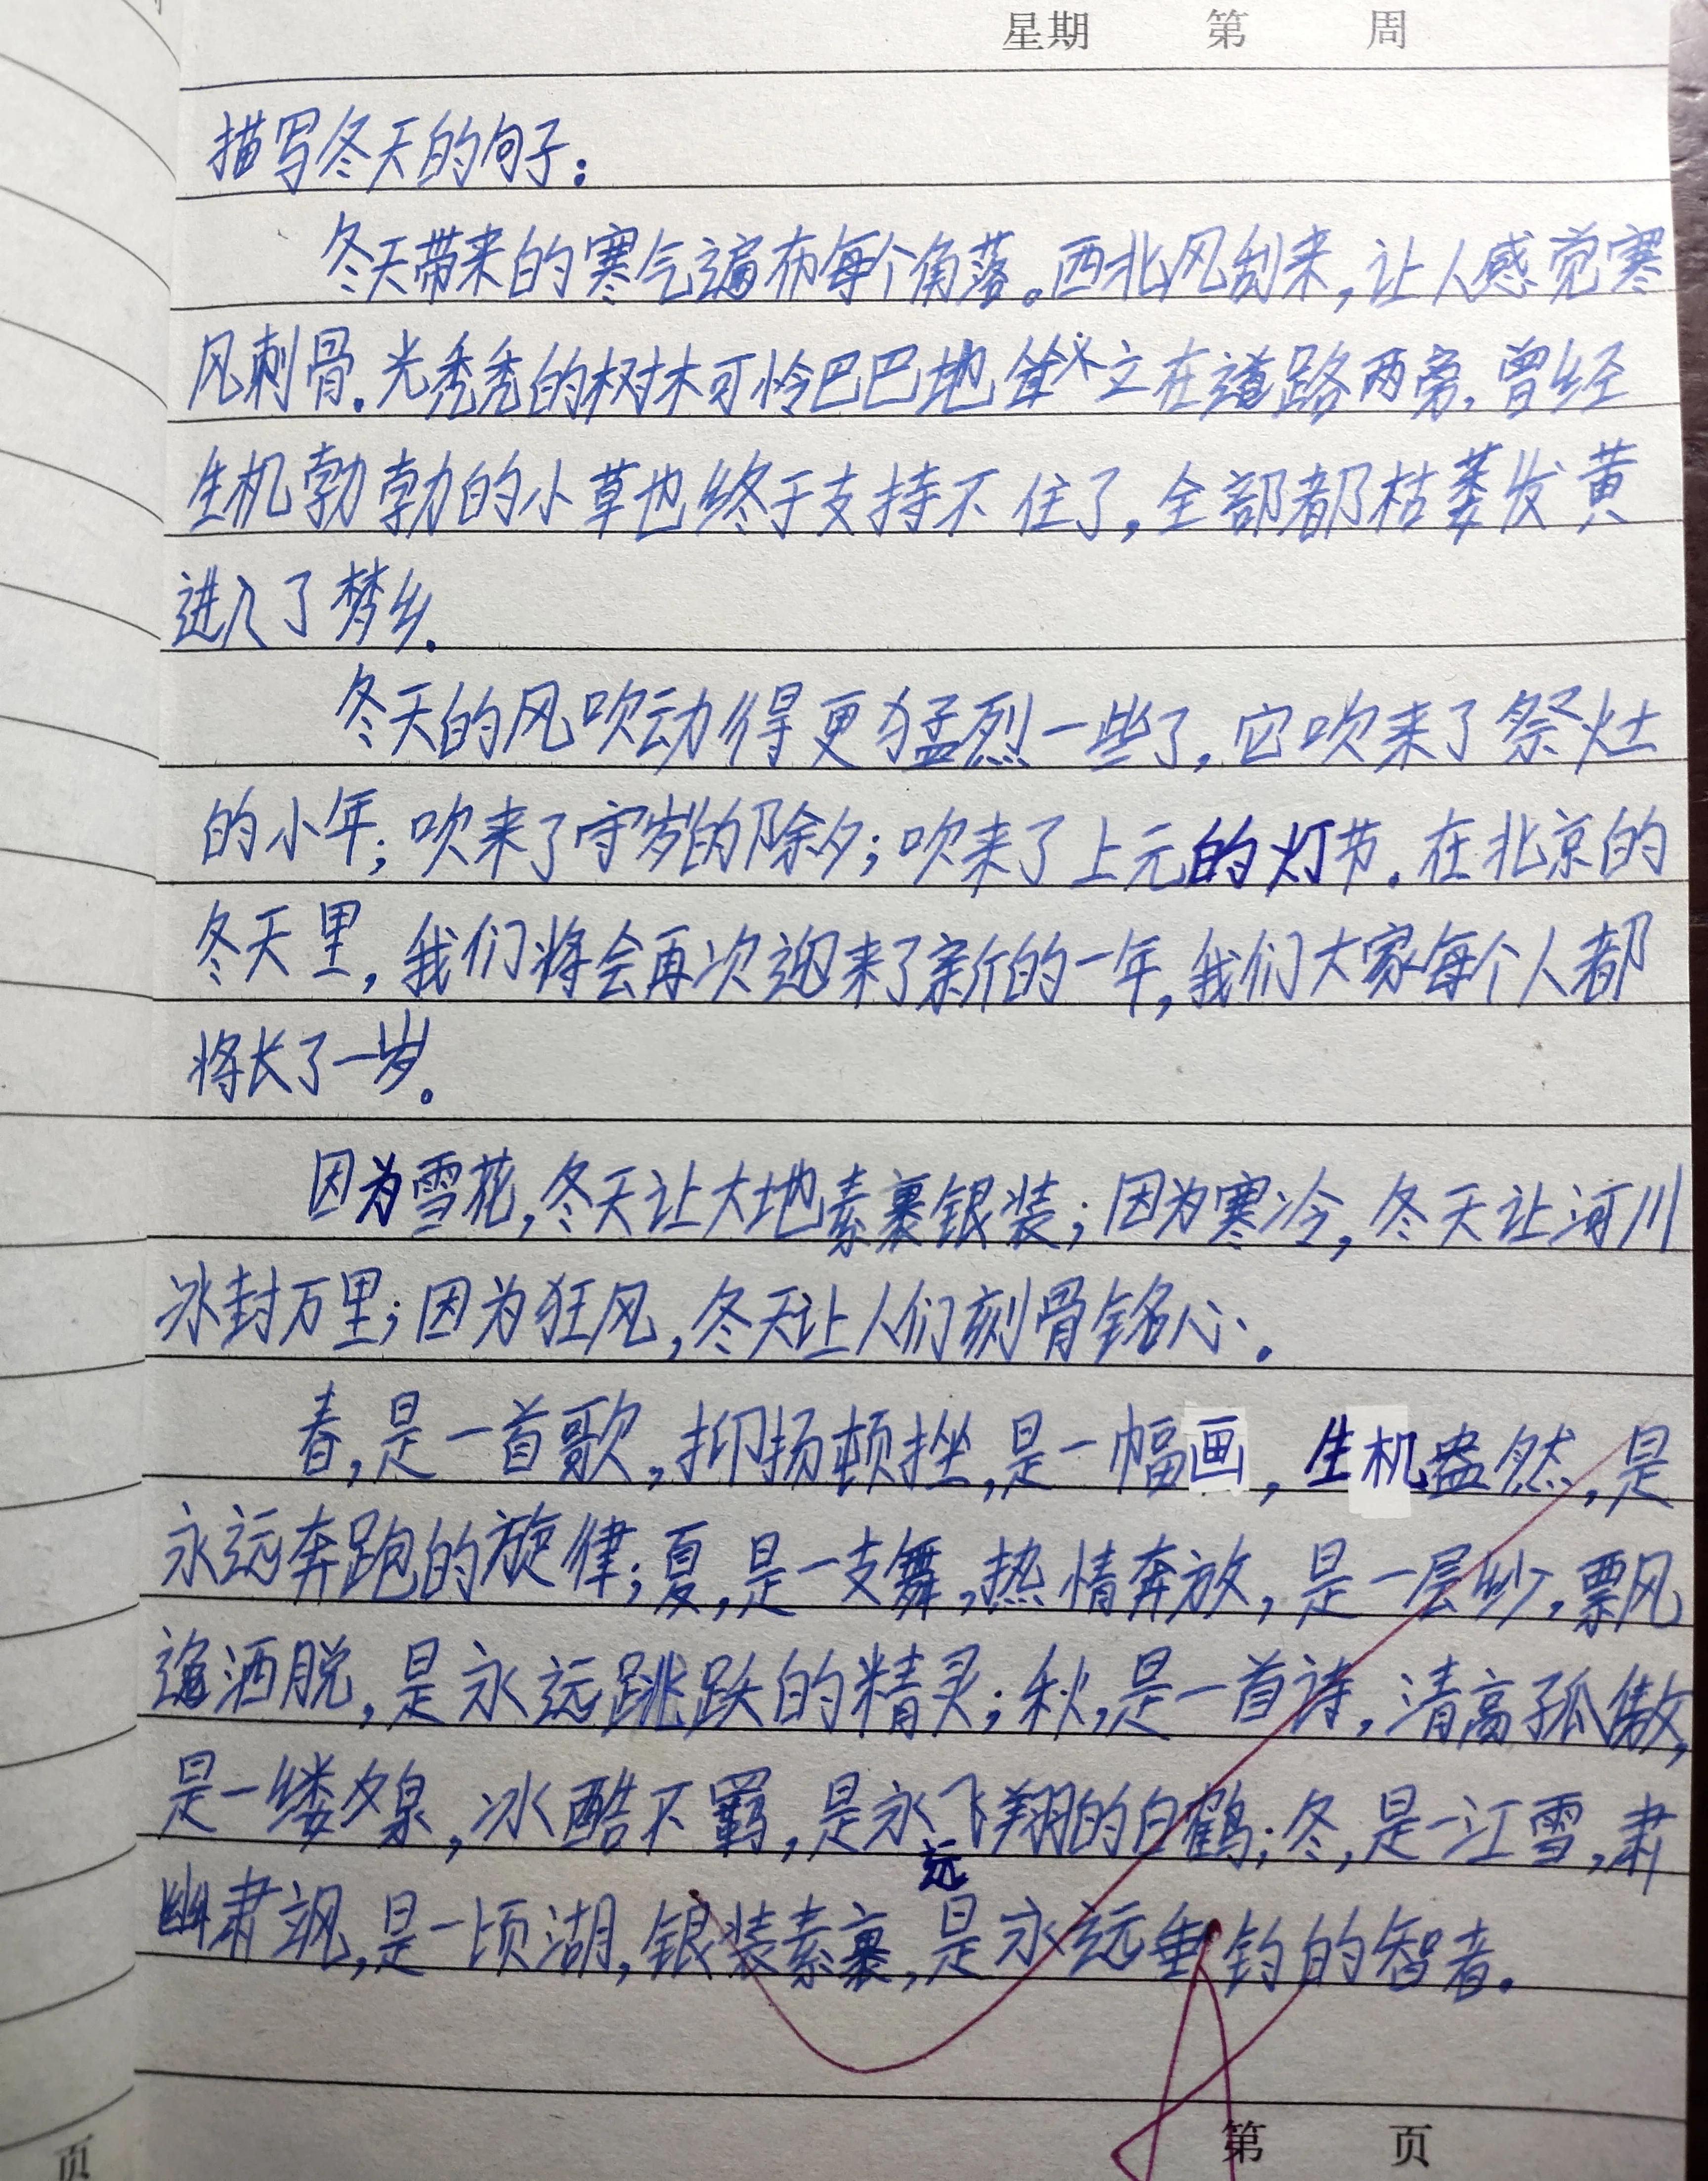 星期 第 周
描写冬天的句子:
冬天带来的寒气遍布每个角落。西北风刮来,让人感觉寒
风刺骨。光秃秃的树木可怜巴巴地耸立在道路两旁,曾经
生机勃勃的小草也终于支持不住了,全部都枯萎发黄
进入了梦乡。
冬天的风吹动得更猛烈一些了,它吹来了祭灶
的小年;吹来了守岁的除夕;吹来了上元的灯节。在北京的
冬天里,我们将会再次迎来了新的一年,我们大家每个人都
将长了一岁。
因为雪花,冬天让大地素裹银装;因为寒冷,冬天让河川
冰封万里;因为狂风,冬天让人们刻骨铭心。
春,是一首歌,抑扬顿挫,是一幅画,生机盎然,是
永远奔跑的旋律;夏,是一支舞,热情奔放,是一层纱,飘风
逸洒脱,是永远跳跃的精灵;秋,是一首诗,清高孤傲,
是一缕泉,冰酷不羁,是永远飞翔的白鹤;冬,是一江雪,肃
幽肃飒,是一顷湖,银装素裹,是永远垂钓的智者。
第 页
页